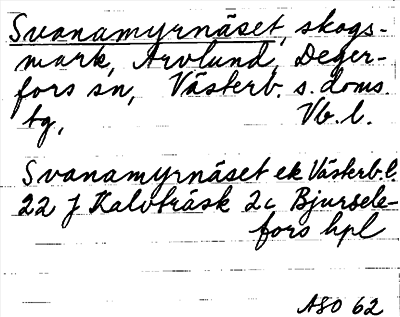 Svanamyrnäset, skogs-
mark, Arvlund, Deger-
fors sn, Västerb. s. doms.
tg, Vb. l.
Svanamyrnäset ek Västerb. l.
22 J Kalvträsk 2c Bjursele-
fors hpl
ASO 62